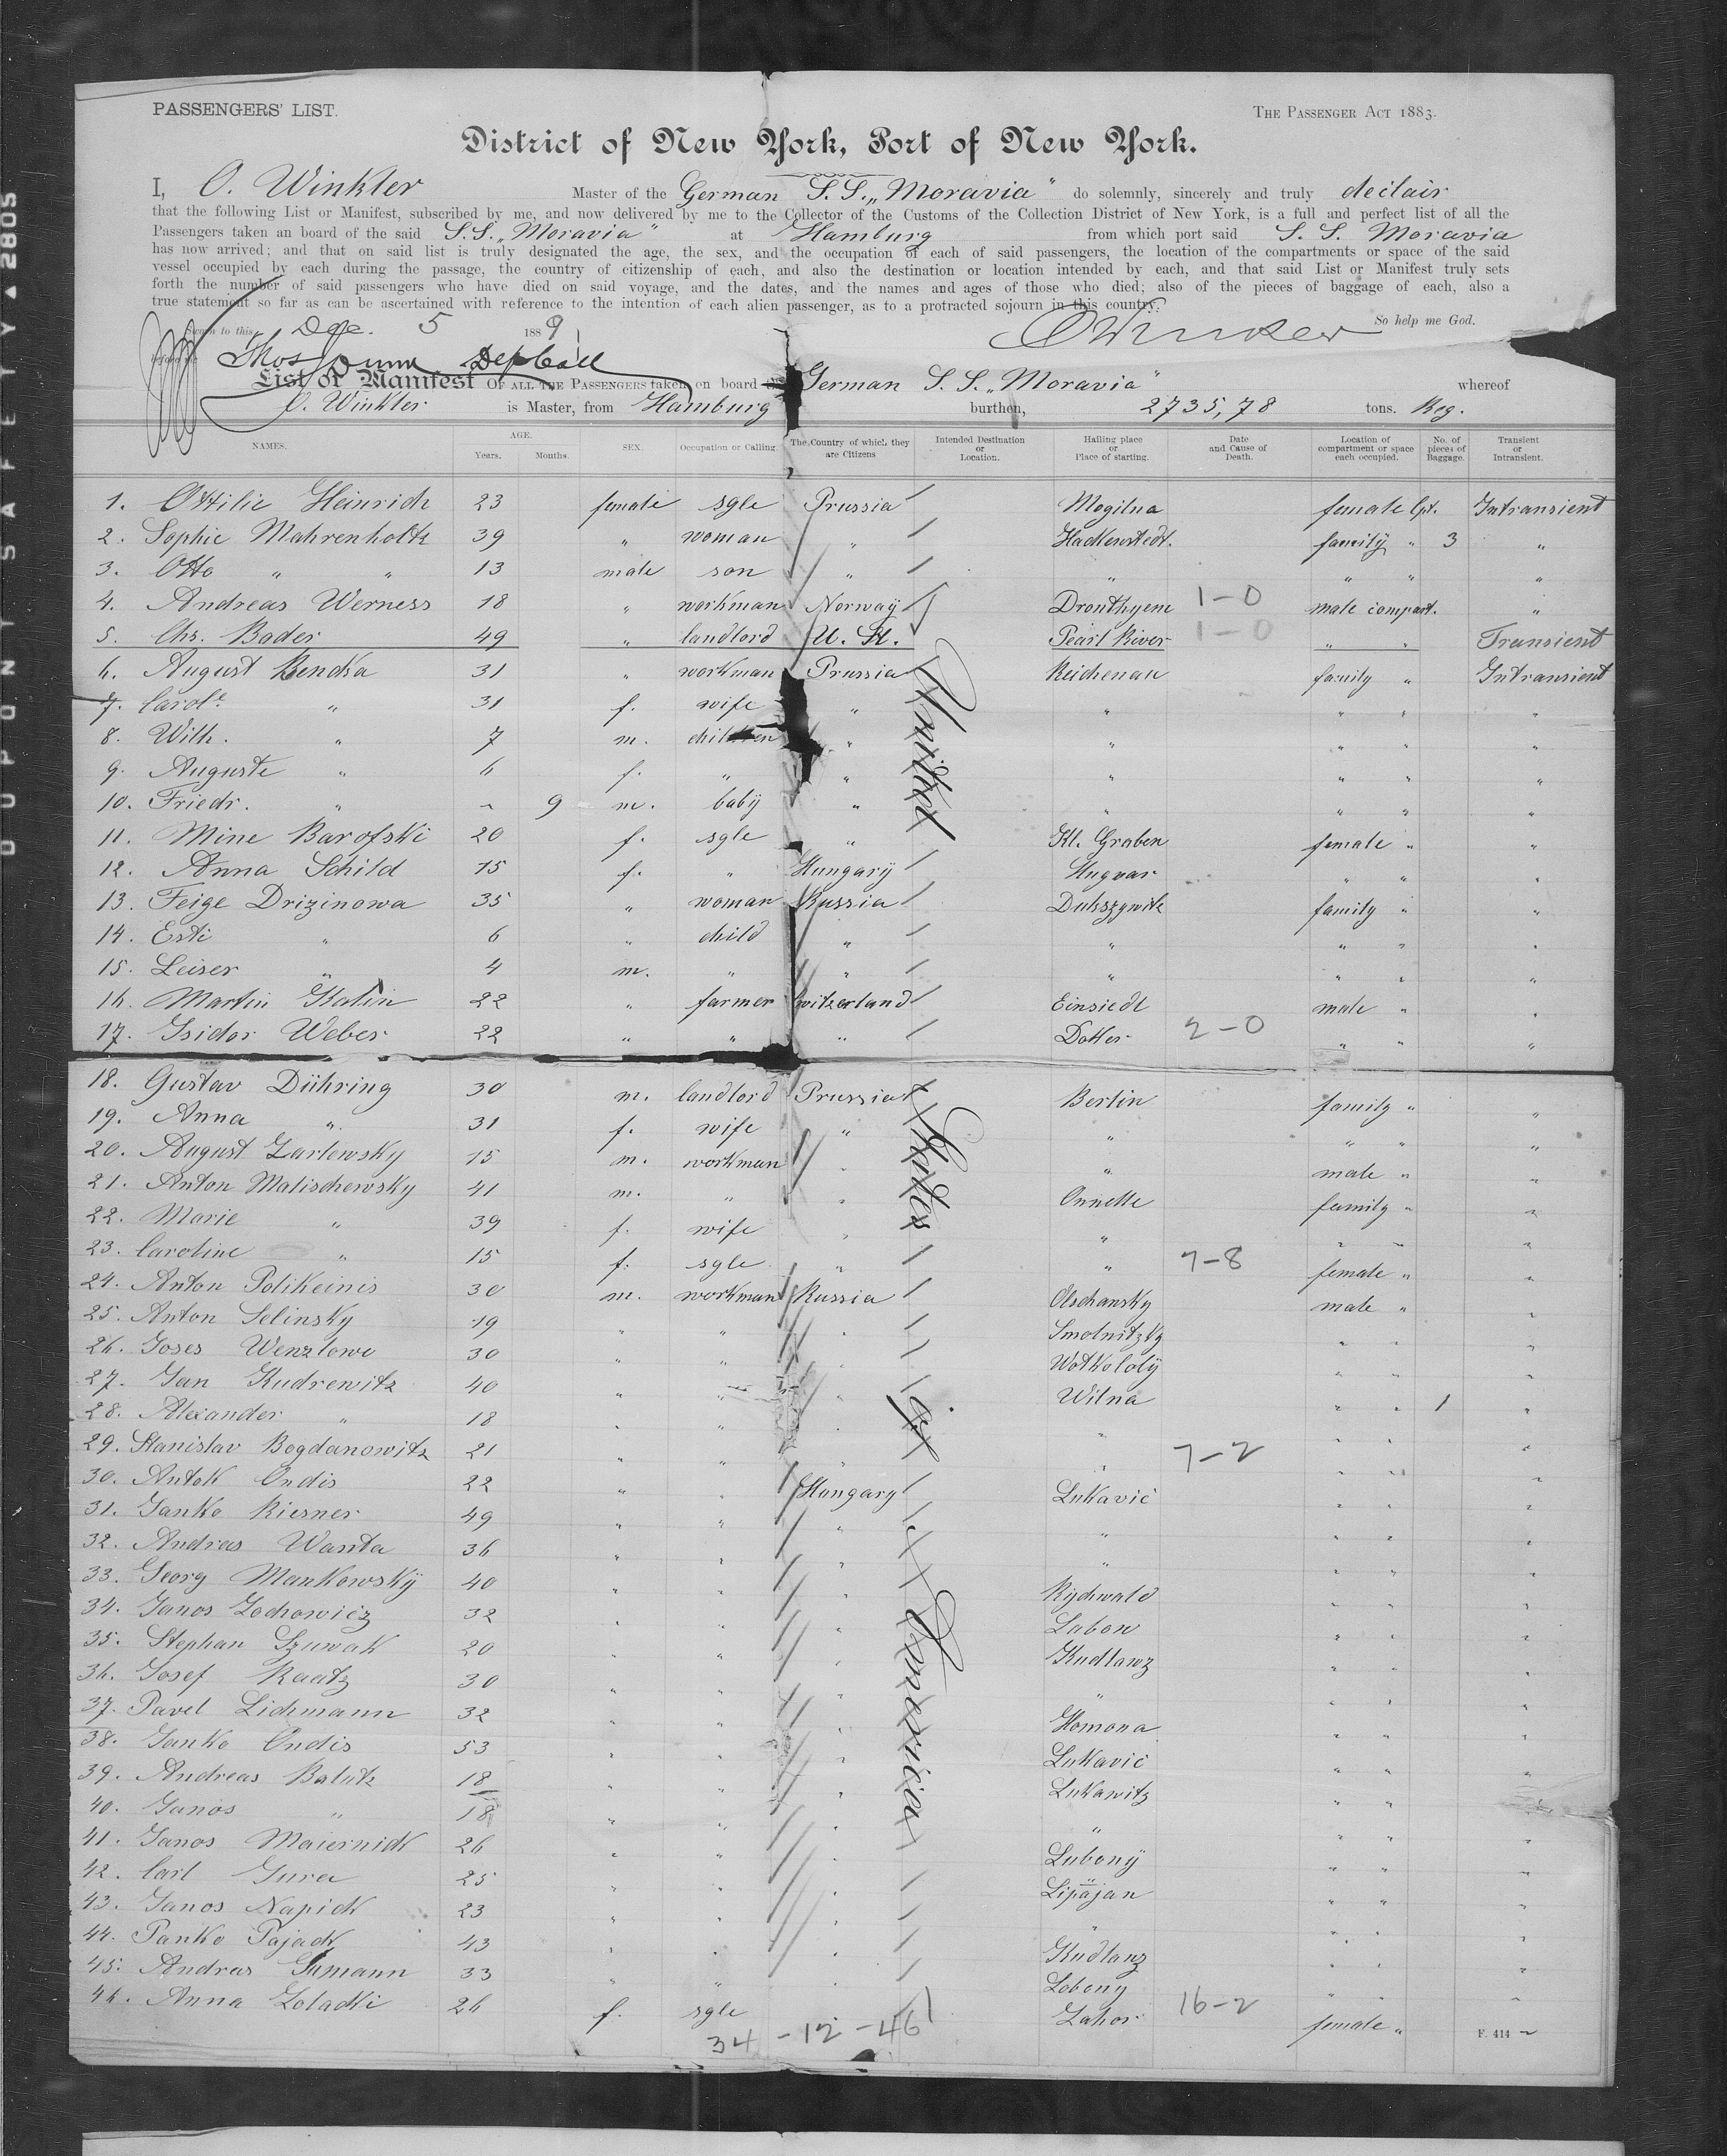 PASSENGERS' LIST. THE PASSENGER ACT 1883.
District of New York, Port of New York.
I, O. Winkler Master of the German S.S. „Moravia" do solemnly, sincerely and truly declair
that the following List or Manifest, subscribed by me, and now delivered by me to the Collector of the Customs of the Collection District of New York, is a full and perfect list of all the
Passengers taken an board of the said S.S. „Moravia" at Hamburg from which port said S. S. Moravia
has now arrived; and that on said list is truly designated the age, the sex, and the occupation of each of said passengers, the location of the compartments or space of the said
vessel occupied by each during the passage, the country of citizenship of each, and also the destination or location intended by each, and that said List or Manifest truly sets
forth the number of said passengers who have died on said voyage, and the dates, and the names and ages of those who died; also of the pieces of baggage of each, also a
true statement so far as can be ascertained with reference to the intention of each alien passenger, as to a protracted sojourn in this country.
Sworn to this Dec. 5 1889 So help me God.
before me Thos Dunn Dep Coll OWinkler
List or Manifest OF ALL THE PASSENGERS taken on board German S. S. „Moravia" whereof
O. Winkler is Master, from Hamburg burthen, 2735,78 tons. Reg.
NAMES. AGE. Years. Months. SEX. Occupation or Calling. The Country of which they are Citizens Intended Destination or Location. Hailing place or Place of starting. Date and Cause of Death. Location of compartment or space each occupied. No. of pieces of Baggage. Transient or Intransient.
1. Ottilie Heinrich 23 female sgle Prussia Mogilna female Cpt. Intransient
2. Sophie Mahrenholtz 39 " woman " Hackenstedt. family " 3 "
3. Otto " " 13 male son " " " " "
4. Andreas Werness 18 " workman Norway Dronthyene 1-0 male compart. "
5. Chs. Bader 49 " landlord U. St. Pearl River 1-0 " " Transient
6. August Bendka 31 " workman Prussia Reichenau family " Intransient
7. Carole. " 31 f. wife " " " " "
8. Wilh. " 7 m. children " " " " "
9. Auguste " 6 f. " " " " " "
10. Friedr. " - 9 m. baby " " " " "
11. Mine Barofski 20 f. sgle " Kl. Graben female " "
12. Anna Schild 15 f. " Hungary Hugvar " " "
13. Feige Drizinowa 35 " woman Russia Duhszywitz family " "
14. Esti " 6 " child " " " " "
15. Leiser " 4 m. " " " " " "
16. Martin Kalin 22 " farmer Switzerland Einsiedl male " "
17. Isidor Weber 22 " " " Dotter 2-0 " " "
18. Gustav Dühring 30 m. landlord Prussia Berlin family " "
19. Anna " 31 f. wife " " " " "
20. August Zarlewsky 15 m. workman " " male " "
21. Anton Malischewsky 41 m. " " Onnette family " "
22. Marie " 39 f. wife " " " " "
23. Caroline " 15 f. sgle " " 7-8 female " "
24. Anton Polikeinis 30 m. workman Russia Olschansky male " "
25. Anton Selinsky 19 " " " Smolnitzky " " "
26. Joses Wenzlowo 30 " " " Wotkololÿ " " "
27. Jan Kudrewitz 40 " " " Wilna " " 1 "
28. Alexander " 18 " " " " " " "
29. Stanislav Bogdanowitz 21 " " " " 7-2 " " "
30. Antok Ondis 22 " " Hungary Lukavic " " "
31. Janko Riesner 49 " " " " " " "
32. Andreas Wanta 36 " " " " " " "
33. Georg Mankowskÿ 40 " " " Rychwald " " "
34. Janos Zochowicz 32 " " " Labon " " "
35. Stephan Szuwak 20 " " " Kudlanz " " "
36. Josef Raatz 30 " " " " " " "
37. Pavel Lichmann 32 " " " Homona " " "
38. Janko Ondis 53 " " " Lukavic " " "
39. Andreas Balutz 18 " " " Lukawitz " " "
40. Janos " 18 " " " " " " "
41. Janos Maiernick 26 " " " Lubonÿ " " "
42. Carl Jura 25 " " " Lipäjan " " "
43. Janos Napick 23 " " " " " " "
44. Panko Pajack 43 " " " Kudlanz " " "
45. Andreas Sumann 33 " " " Lobony " " "
46. Anna Zoladki 26 f. sgle Zahor 16-2 female " "
34 - 12 - 46
F. 414
United States of America
DUPONT SAFETY ▲ 2805